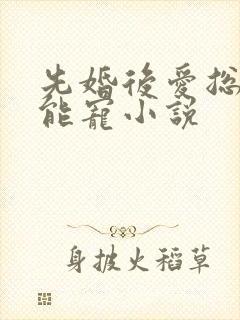 先婚後愛總
能寵小説
身披火稻草